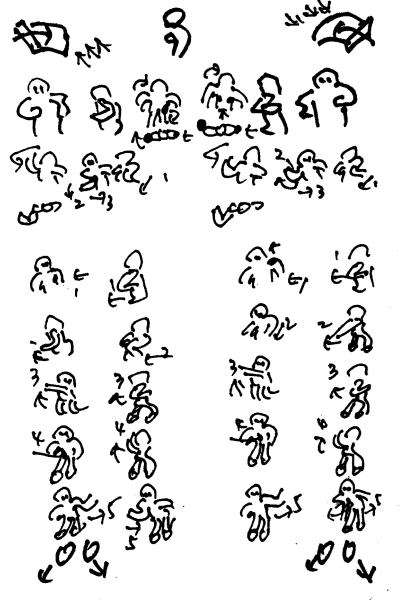 2 3 1 2 3 1
1 1 1
2 2 2
3 3 3 3
4 4
5 5 5